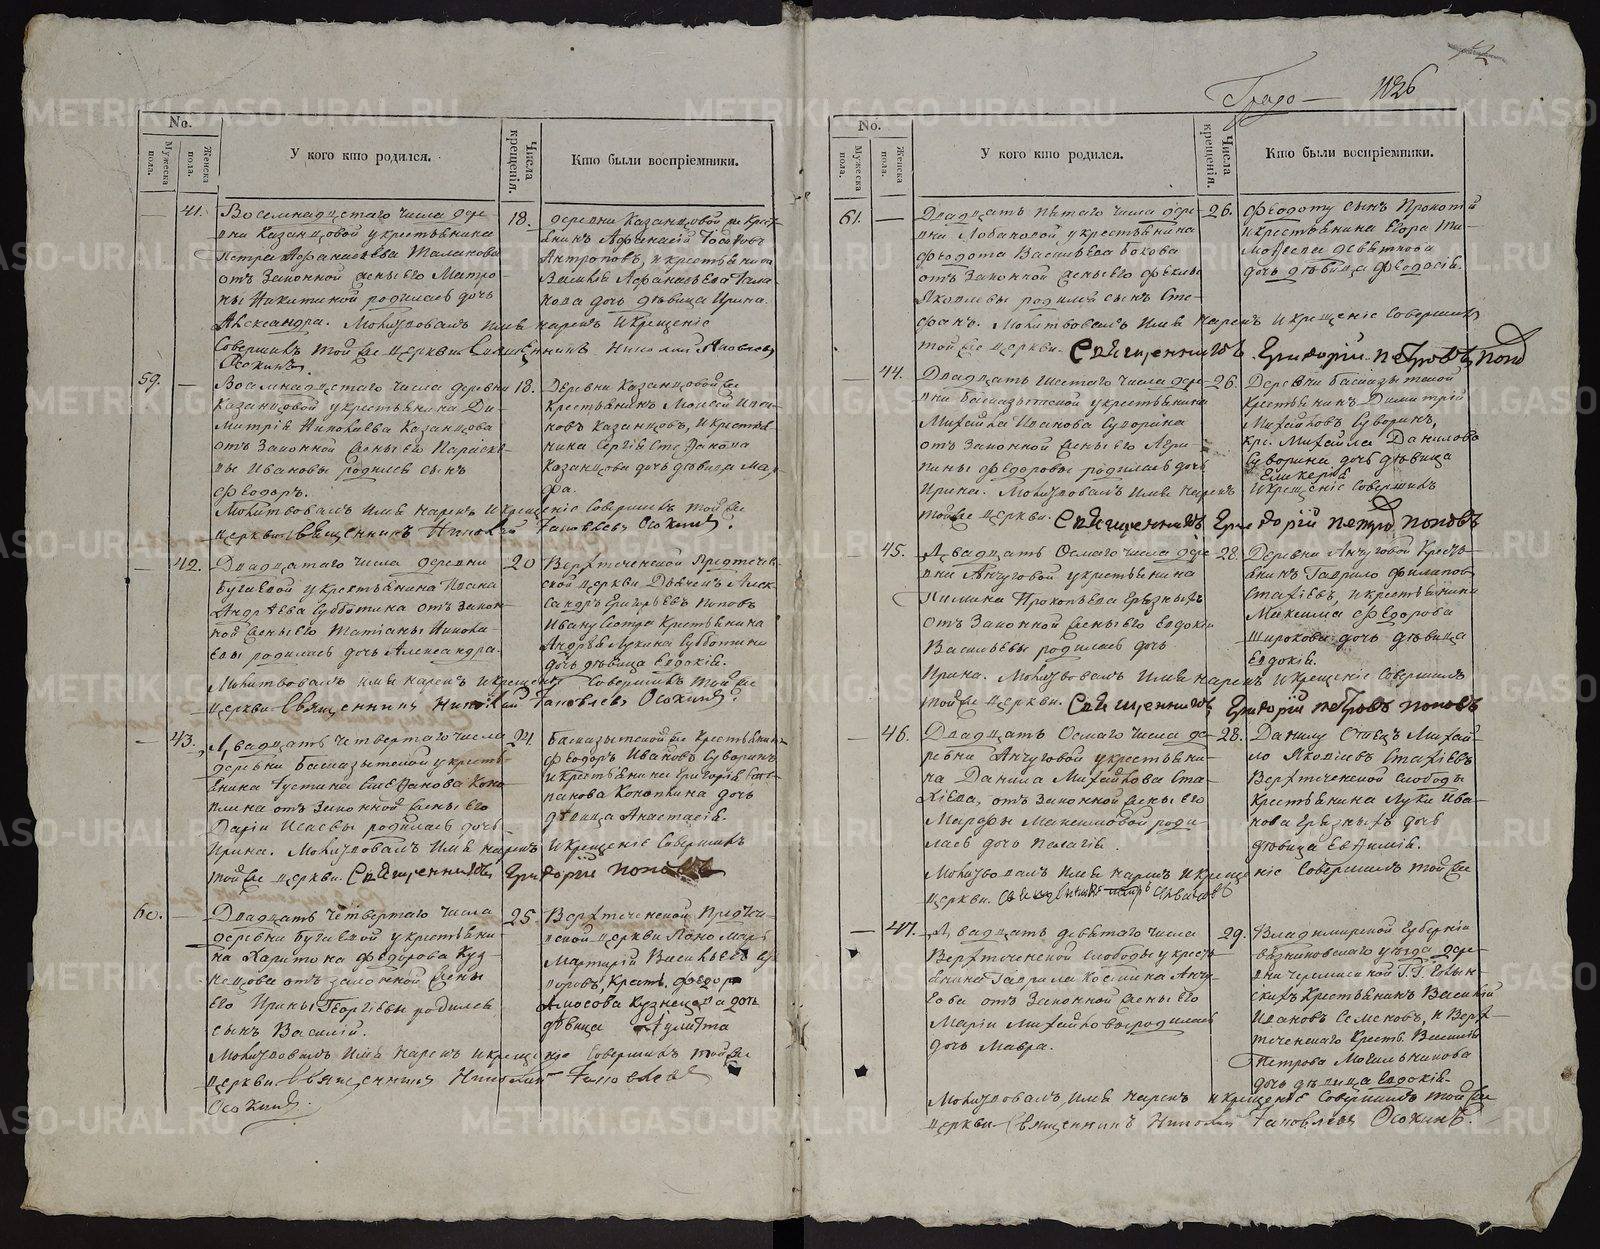 No.
Мужеска пола.
Женска пола.
У кого кто родился.
Числа крещенія.
Кто были воспріемники.
41.
Восемнадцетаго числа дере-
вни Казанцовой у крестьянина
Петра Афанасьева Таланкова
отъ законной жены его Матро-
ны Никитиной родилась дочь
Александра. Молитвовалъ имя
совершилъ той же церкви Священ
Осокинъ.
18.
деревни Казанцовой же крест
янинъ Афонасій
Антроповъ, и крестьянина
Василья Афанасьева Тала-
нова дочь дѣвица Ирина.
нарекъ и крещеніе
никъ Николай Яковлевъ
59.
Восемнадцетаго числа деревни
Казанцовой у крестьянина Ди-
митрія Николаева Казанцова
отъ законной жены его Параске-
вы Ивановы родился сынъ
Феодоръ.
Молитвовалъ имя нарекъ и крещ
церкви священникъ Николай
18.
Деревни Казанцовой же
крестьянинъ Моисей Ива-
новъ Казанцовъ, и крестья-
нина Сергія Стефанова
Казанцова дочь дѣвица Мар-
фа.
еніе совершилъ той же
Іаковлевъ Осокинъ.
42.
Двадцатаго числа деревни
Бугаевой у крестьянина Ивана
Андреева Субботина отъ закон-
ной жены его Татіаны Никола-
евы родилась дочь Александра.
Молитвовалъ имя нарекъ и крещен
церкви священникъ Николай
20
Верхтеченской Предтечен-
ской церкви Дьячекъ Алек-
сандръ Григорьевъ Поповъ
Ивану Сестра крестьянина
Андрея Лукина Субботина
дочь дѣвица Евдокія.
совершилъ той же
Іаковлевъ Осокинъ.
43.
Двадцать четвертаго числа
деревни Басказыкской у крестья-
янина Густина Стефанова Коно-
плина отъ законной жены его
Даріи Исаевы родилась дочь
Ирина. Молитвовалъ имя нарекъ
той же церкви. Священникъ Гри
24.
Басказыкской же крестьянинъ
Феодоръ Ивановъ Суворинъ
и крестьянина Григорія Сте-
панова Коноплина дочь
дѣвица Анастасія.
и крещеніе совершилъ
горій поповъ
60.
Двадцать четвертаго числа
деревни Бугаевой у крестьяни-
на Харитона Федорова Куз-
нецова отъ законной жены
его Ирины Георгіевы родился
сынъ Василій.
Молитвовалъ имя нарекъ и креще
церкви священникъ Николай
Осокинъ.
25.
Верхтеченской Предтеч-
енской церкви Поно марь
Мартирій Васильевъ
поповъ, Крест. Федора
Амосова Кузнецова дочь
дѣвица Іулита
ніе совершилъ той же
Іаковлевъ
1826
No.
Мужеска пола.
Женска пола.
У кого кто родился.
Числа крещенія.
Кто были воспріемники.
61.
Двадцать пятаго числа дере-
вни Лобановой у крестьянина
Феодота Васильева Бокова
отъ законной жены его Феклы
Яковлевы родился сынъ Сте-
фанъ. Молитвовалъ имя нарекъ и крещеніе совершилъ
той же церкви. Священникъ Григорій петровъ попов
26.
Феодоту сынъ Прокопій
и крестьянина Егора Ти-
мофеева девяткова
дочь дѣвица Феодосія.
44.
Двадцать шестаго числа дере-
вни Басказыкской у крестьянина
Михайла Иванова Суворина
отъ законной жены его Агри-
пины Федоровы родилась дочь
Ирина. Молитвовалъ имя нарекъ
той же церкви. Священникъ Гри
26.
Деревни басказыкской
крестьянинъ Димитрій
Михайловъ Суворинъ,
кре. Михайла Данилова
Суворина дочь дѣвица
Гликерія
и крещеніе совершилъ
горій петро поповъ
45.
Двадцать осмаго числа дере
вни Анчуговой у крестьянина
Пимина Прокопьева Грязныхъ
отъ законной жены его Евдокіи
Васильевы родилась дочь
Ирина. Молитвовалъ имя нарекъ и крещеніе совершилъ
той же церкви. Священникъ Григорій петровъ поповъ
28.
Деревни Анчуговой Кресть-
янинъ Гаврило Филипов
Стахіевъ, и крестьянина
Максима Федорова
Широкова дочь дѣвица
Евдокія.
46.
Двадцать осмаго числа де-
ревни Анчуговой у крестьяни-
на Данила Михайлова Ста-
хіева, отъ законной жены его
Марфы Максимовой роди-
лась дочь Пелагія.
Молитвовалъ имя нарекъ и креще
церкви.
28.
Данилу Отецъ Михай-
ло Яковлевъ Стахіевъ
Верхтеченской слободы
Крестьянина Луки Ива-
нова Грязныхъ дочь
дѣвица Евфимія.
ніе совершилъ той же
47.
Двадцать девятаго числа
Верхтеченской слободы у кресть-
янина Гаврила Космина Анчу-
гова отъ законной жены его
Маріи Михайловой родилась
дочь Мавра.
Молитвовалъ имя нарекъ и крещеніе совершилъ той же
церкви священникъ Николай Іаковлевъ Осокинъ.
29.
Владимирской Губерніи
вязниковскаго уѣзда дере-
вни
Крестьянинъ Василій
Ивановъ Семеновъ, и Верх-
теченскаго крест. Василія
Петрова Могильникова
дочь дѣвица Евдокія.